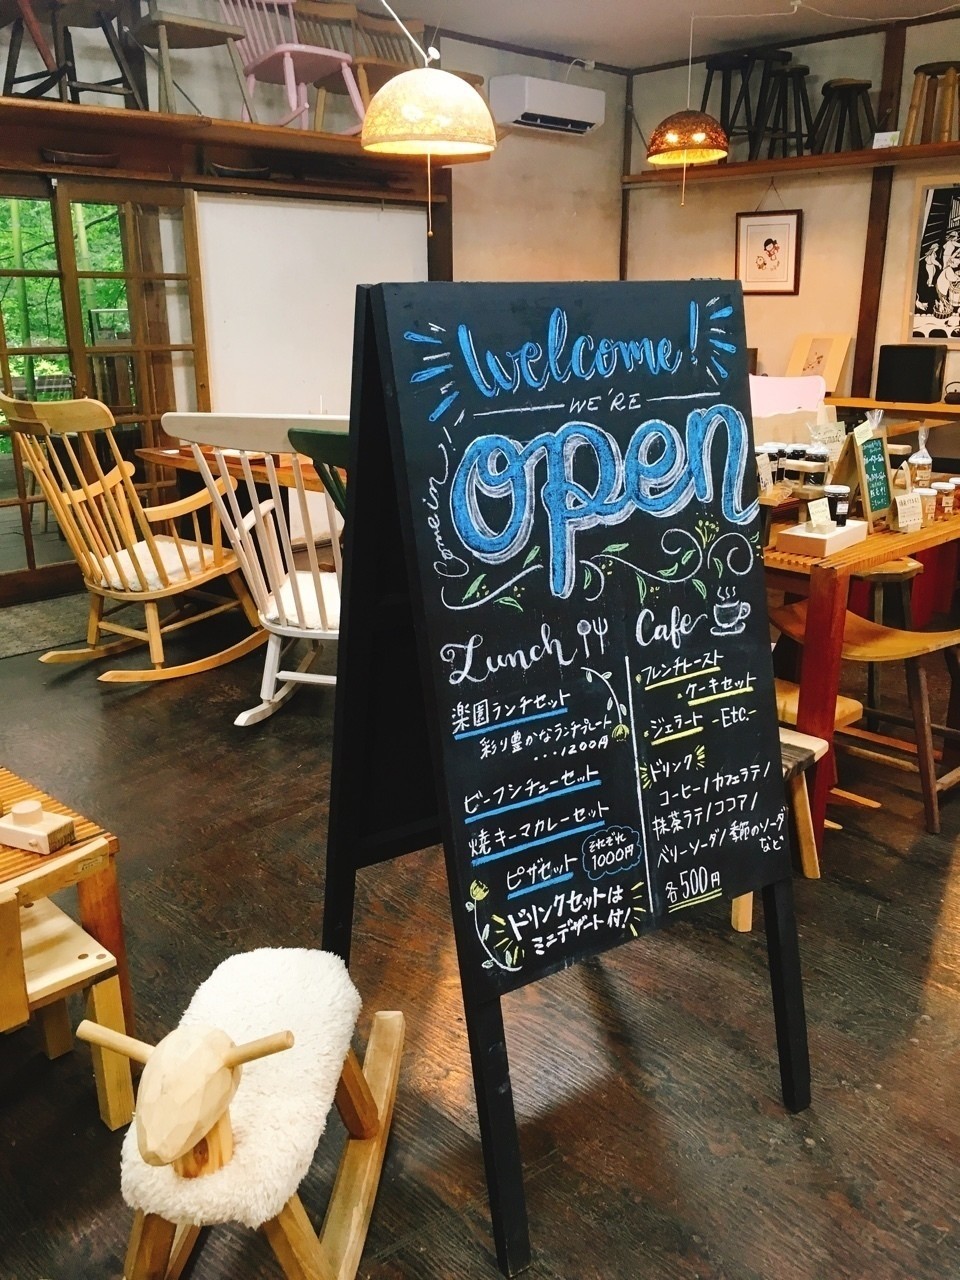 Welcome!
WE'RE
open
Come in!
Lunch
楽園ランチセット
彩り豊かなランチプレート
...1200円
ビーフシチューセット
焼キーマカレーセット
ピザセット
それぞれ
1000円
ドリンクセットは
ミニデザート付!
Cafe
・フレンチトースト
・ケーキセット
・ジェラート -Etc.-
ドリンク
コーヒー/カフェラテ/
抹茶ラテ/ココア/
ベリーソーダ/季節のソーダ
など
各500円